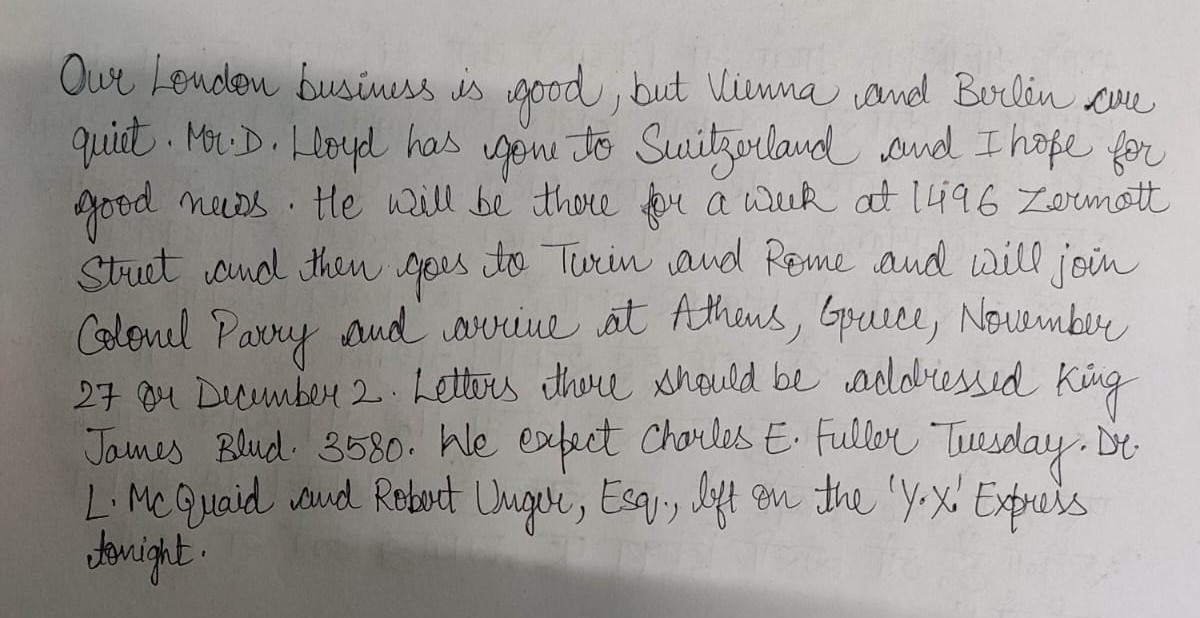 Our London business is good, but Vienna and Berlin are
quiet. Mr. D. Lloyd has gone to Switzerland and I hope for
good news. He will be there for a week at 1496 Zermott
Street and then goes to Turin and Rome and will join
Colonel Parry and arrive at Athens, Greece, November
27 or December 2. Letters there should be addressed King
James Blvd. 3580. We expect Charles E. Fuller Tuesday. Dr.
L. McQuaid and Robert Unger, Esq., left on the 'Y.X.' Express
tonight.